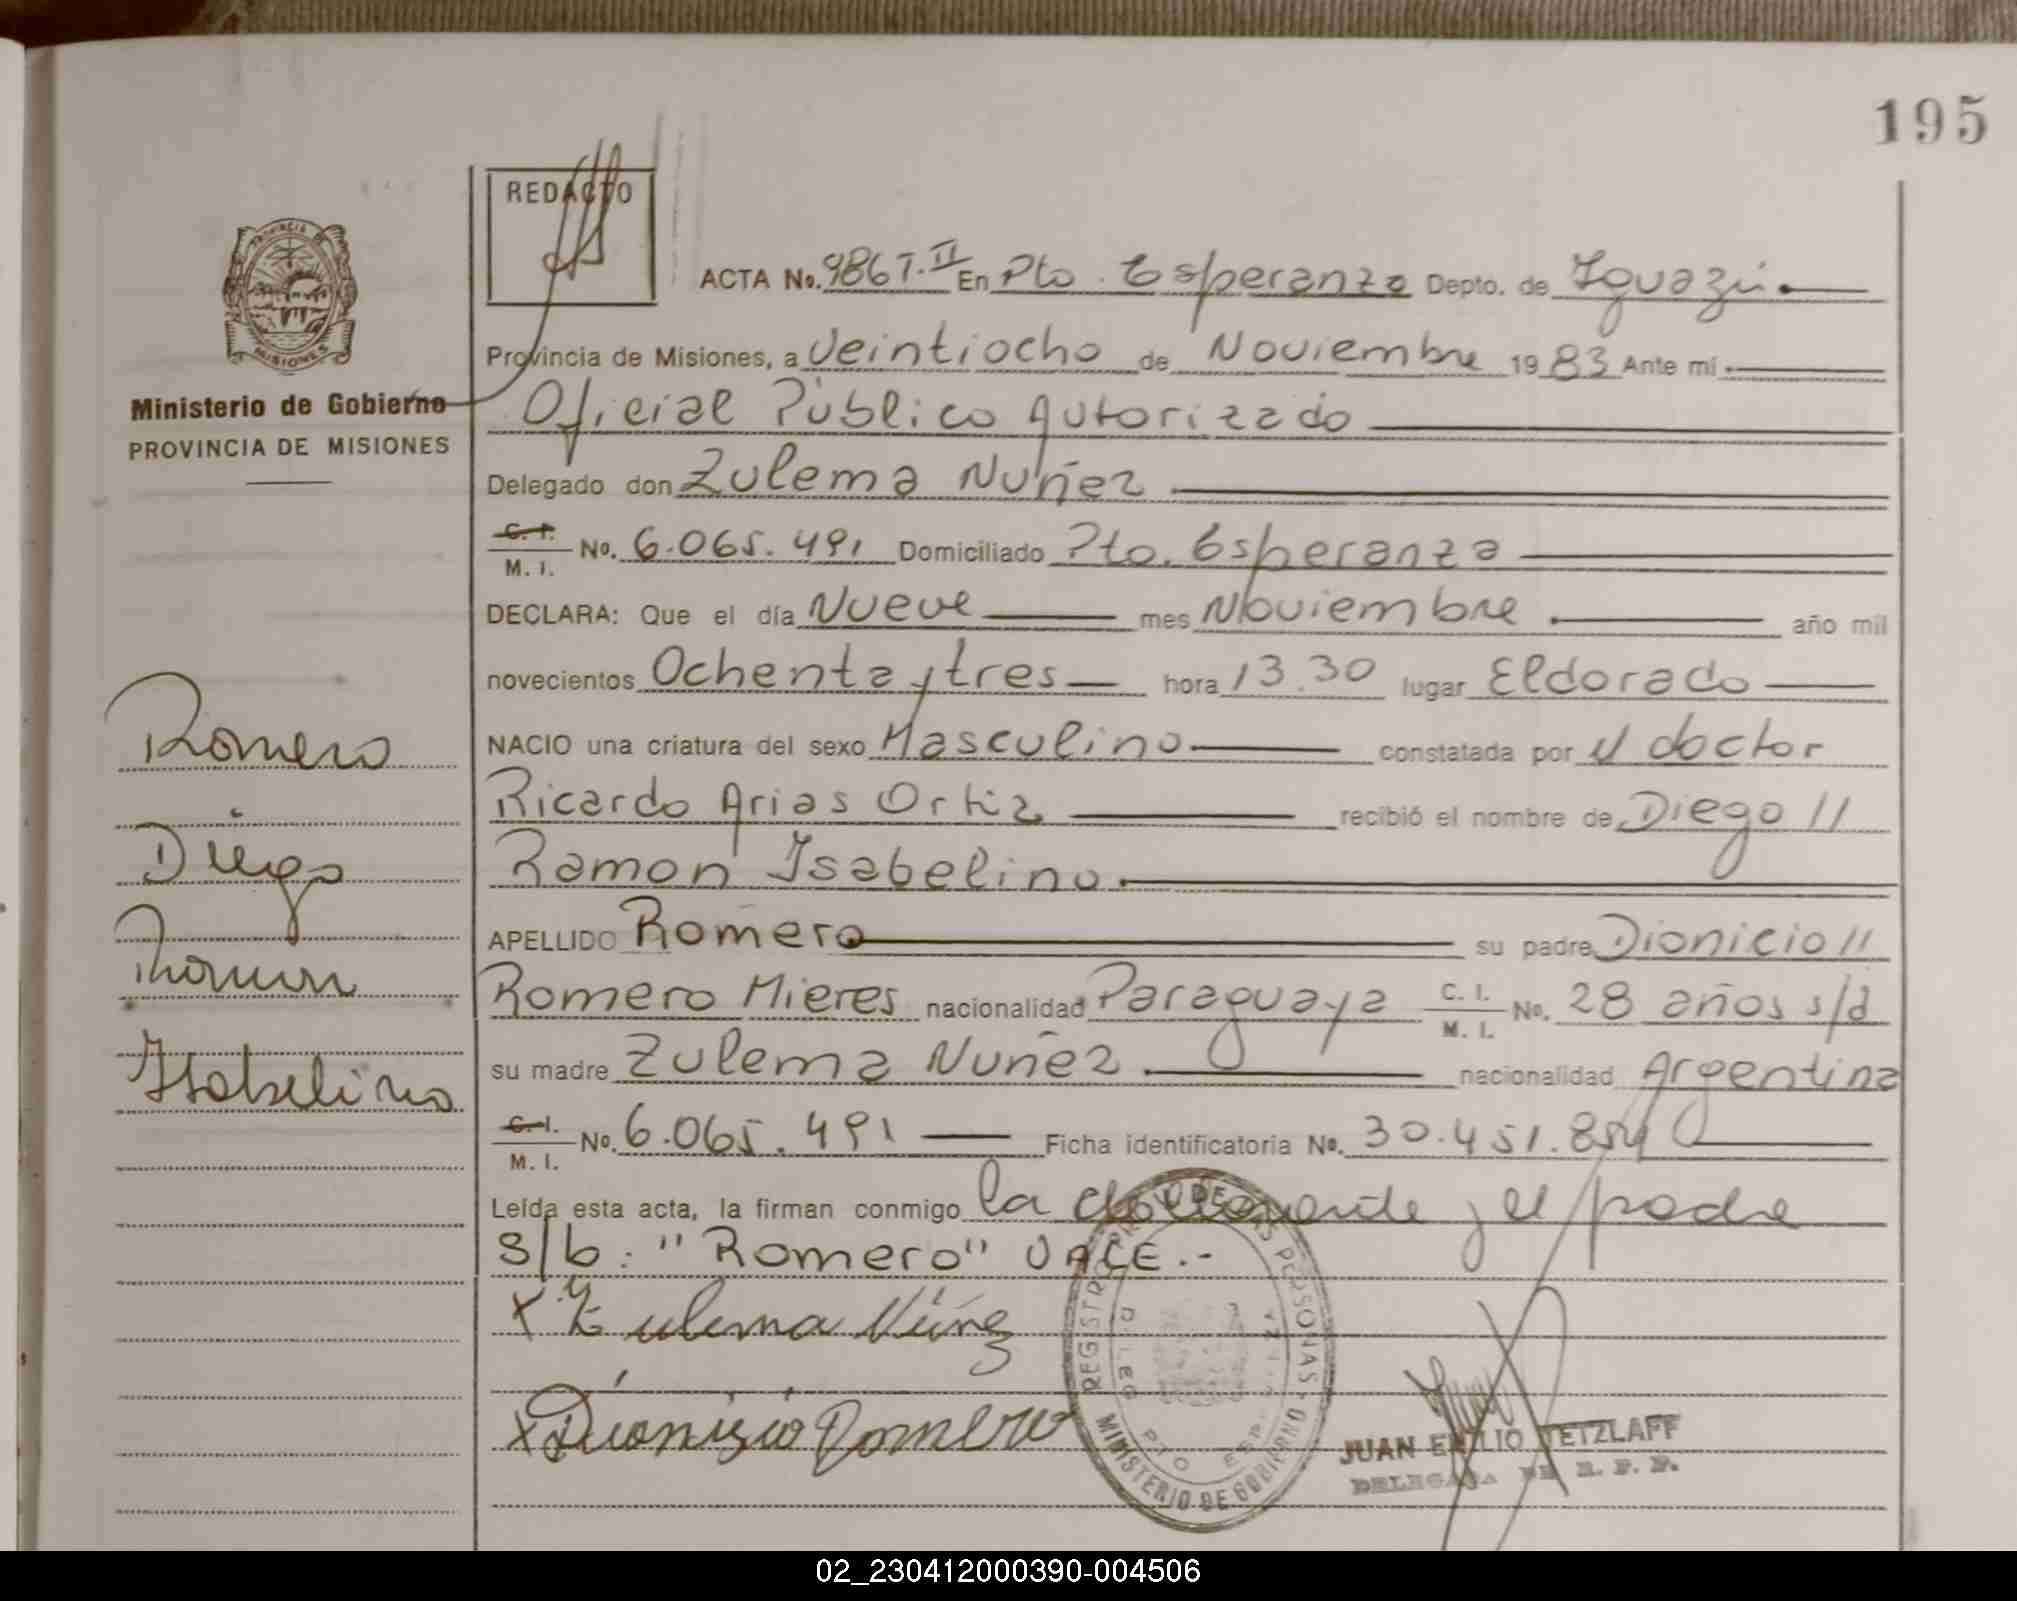 195
REDACTO
ACTA No. 986 T. II En Pto. Esperanza Depto. de Iguazú
Provincia de Misiones, a Veintiocho de Noviembre 1983 Ante mí
Ministerio de Gobierno
PROVINCIA DE MISIONES
Oficial Público Autorizado
Delegado don Zulema Nuñez
C. I. M. I. No. 6.065.491 Domiciliado Pto. Esperanza
DECLARA: Que el día Nueve mes Noviembre año mil
novecientos Ochenta y tres hora 13.30 lugar Eldorado
NACIO una criatura del sexo Masculino constatada por el doctor
Ricardo Arias Ortiz recibió el nombre de Diego //
Ramon Isabelino
APELLIDO Romero su padre Dionicio //
Romero Mieres nacionalidad Paraguaya C. I. M. I. No. 28 años s/d
su madre Zulema Nuñez nacionalidad Argentina
C. I. M. I. No. 6.065.491 Ficha identificatoria No. 30.451.854
Leída esta acta, la firman conmigo la y el padre
S/b: "Romero" VALE.-
x Zulema Núñez
x Dionisio Romero
Romero
Diego
Ramon
Isabelino
REGISTRO PROV. DE LAS PERSONAS
MINISTERIO DE GOBIERNO
DELEG. PTO ESPERANZA
JUAN EMILIO TETZLAFF
DELEGADO DE R. P. P.
PROVINCIA DE
MISIONES
02_230412000390-004506